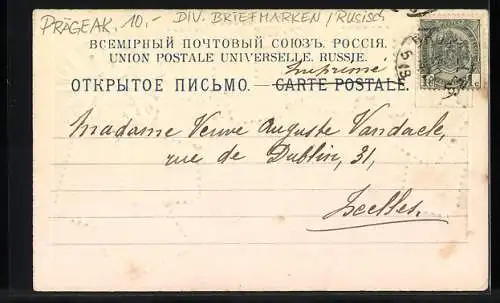 PRÄGEAK. 10.- DIV. BRIEFMARKEN / RUSISCH
ВСЕМІРНЫЙ ПОЧТОВЫЙ СОЮЗЪ. РОССІЯ.
UNION POSTALE UNIVERSELLE. RUSSIE.
Imprimé
ОТКРЫТОЕ ПИСЬМО. — CARTE POSTALE.
Madame Veuve Auguste Vandaele,
rue de Dublin, 31,
Ixelles.